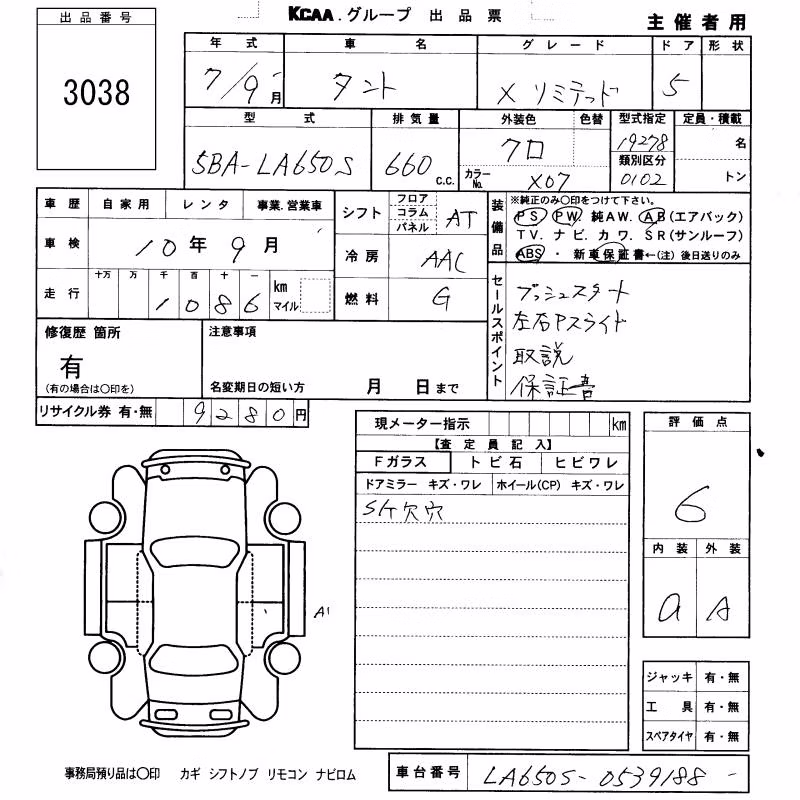 出品番号
3038
KCAA.グループ 出品票
主催者用
年式 車名 グレード ドア 形状
7/9月 タント X リミテッド 5
型式 排気量 外装色 色替 型式指定 定員・積載
5BA-LA650S 660 C.C. クロ 19278 名
カラーNo. X07 類別区分 0102 トン
車歴 自家用 レンタ 事業.営業車
車検 10年9月
走行 十万 万 千 百 十 一
1086 km マイル
シフト フロア コラム パネル AT
冷房 AAC
燃料 G
装備品
※純正のみ〇印をつけて下さい。
PS PW 純AW. AB(エアバック)
TV. ナビ. カワ. SR(サンルーフ)
ABS・新車保証書←(注)後日送りのみ
セールスポイント
プッシュスタート
左右Pスライド
取説
保証書
修復歴 箇所
有
(有の場合は〇印を)
注意事項
名変期日の短い方 月 日まで
リサイクル券 有・無 9280円
現メーター指示 km
【査定員記入】
Fガラス トビ石 ヒビワレ
ドアミラー キズ・ワレ ホイール(CP) キズ・ワレ
欠穴
A1
評価点
6
内装 外装
a A
ジャッキ 有・無
工具 有・無
スペアタイヤ 有・無
事務局預り品は〇印 カギ シフトノブ リモコン ナビロム
車台番号 LA650S-0539188-